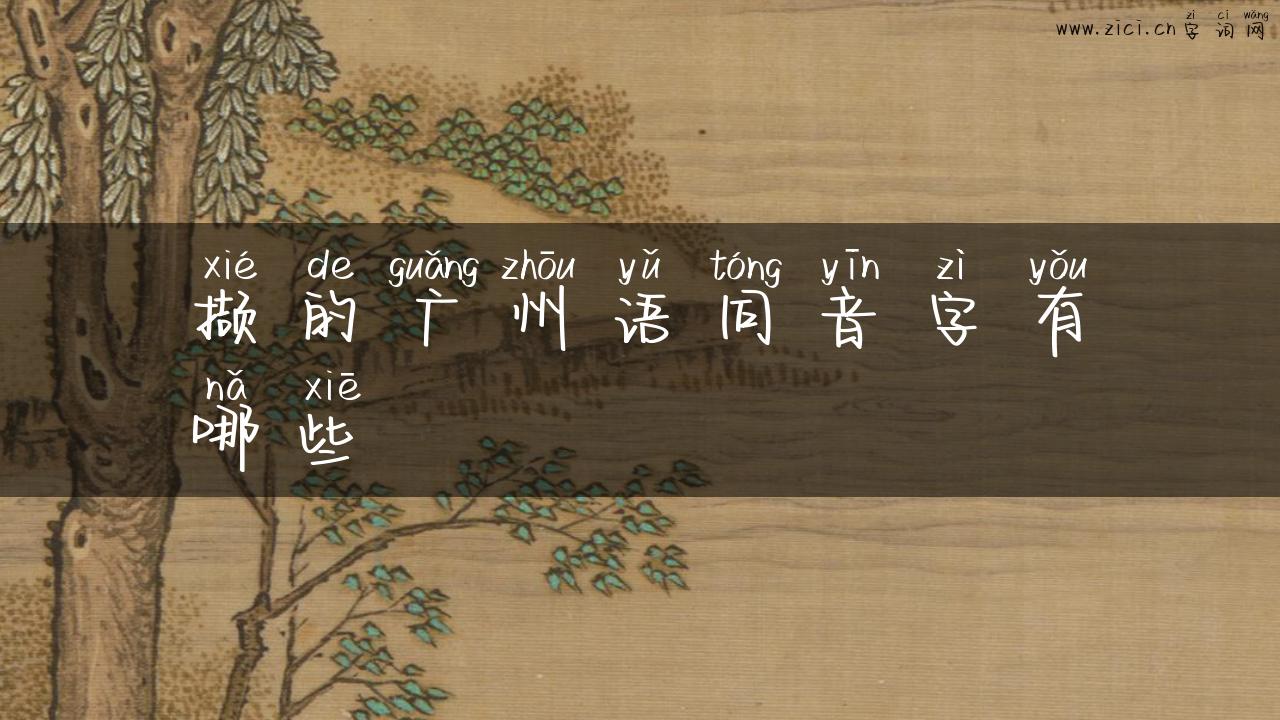 zì cí wǎng
www.zici.cn 字 词 网
xié de guǎng zhōu yǔ tóng yīn zì yǒu
撷 的 广 州 语 同 音 字 有
nǎ xiē
哪 些